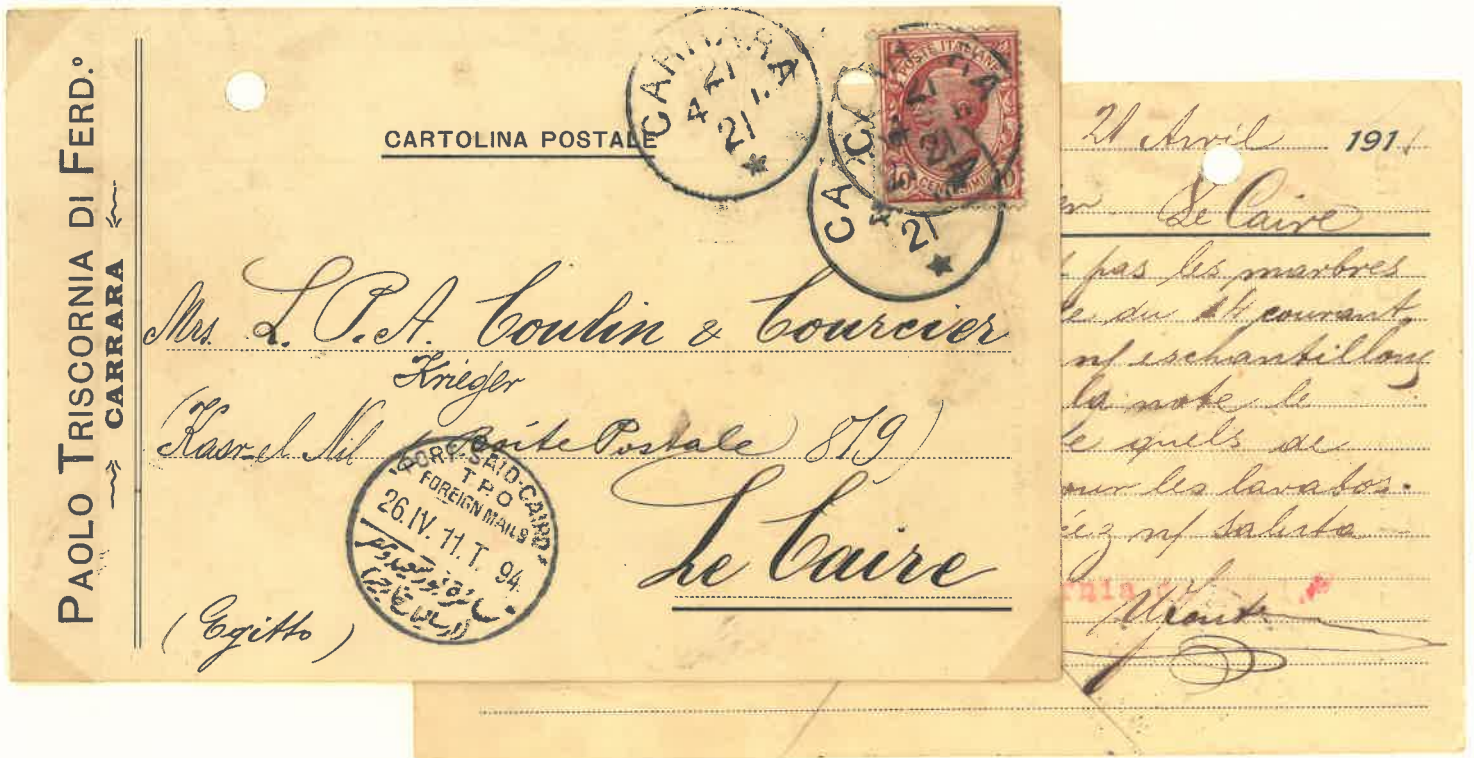 PAOLO TRISCORNIA DI FERD.º
CARRARA
CARTOLINA POSTALE
CARRARA
21
4
21
POSTE ITALIANE
10 CENTESIMI 10
Mrs. L. P. A. Coulin & Courcier
Krieger
(Kasr-el Nil Boîte Postale 879)
Le Caire
(Egitto)
PORT-SAID-CAIRO
T.P.O
FOREIGN MAILS
26.IV.11.T. 94
21 Avril 1911
Le Caire
pas les marbres
du 14 courant
n/ eschantillons
la note le
quels de
our les lavabos.
ez n/ saluta
rnia